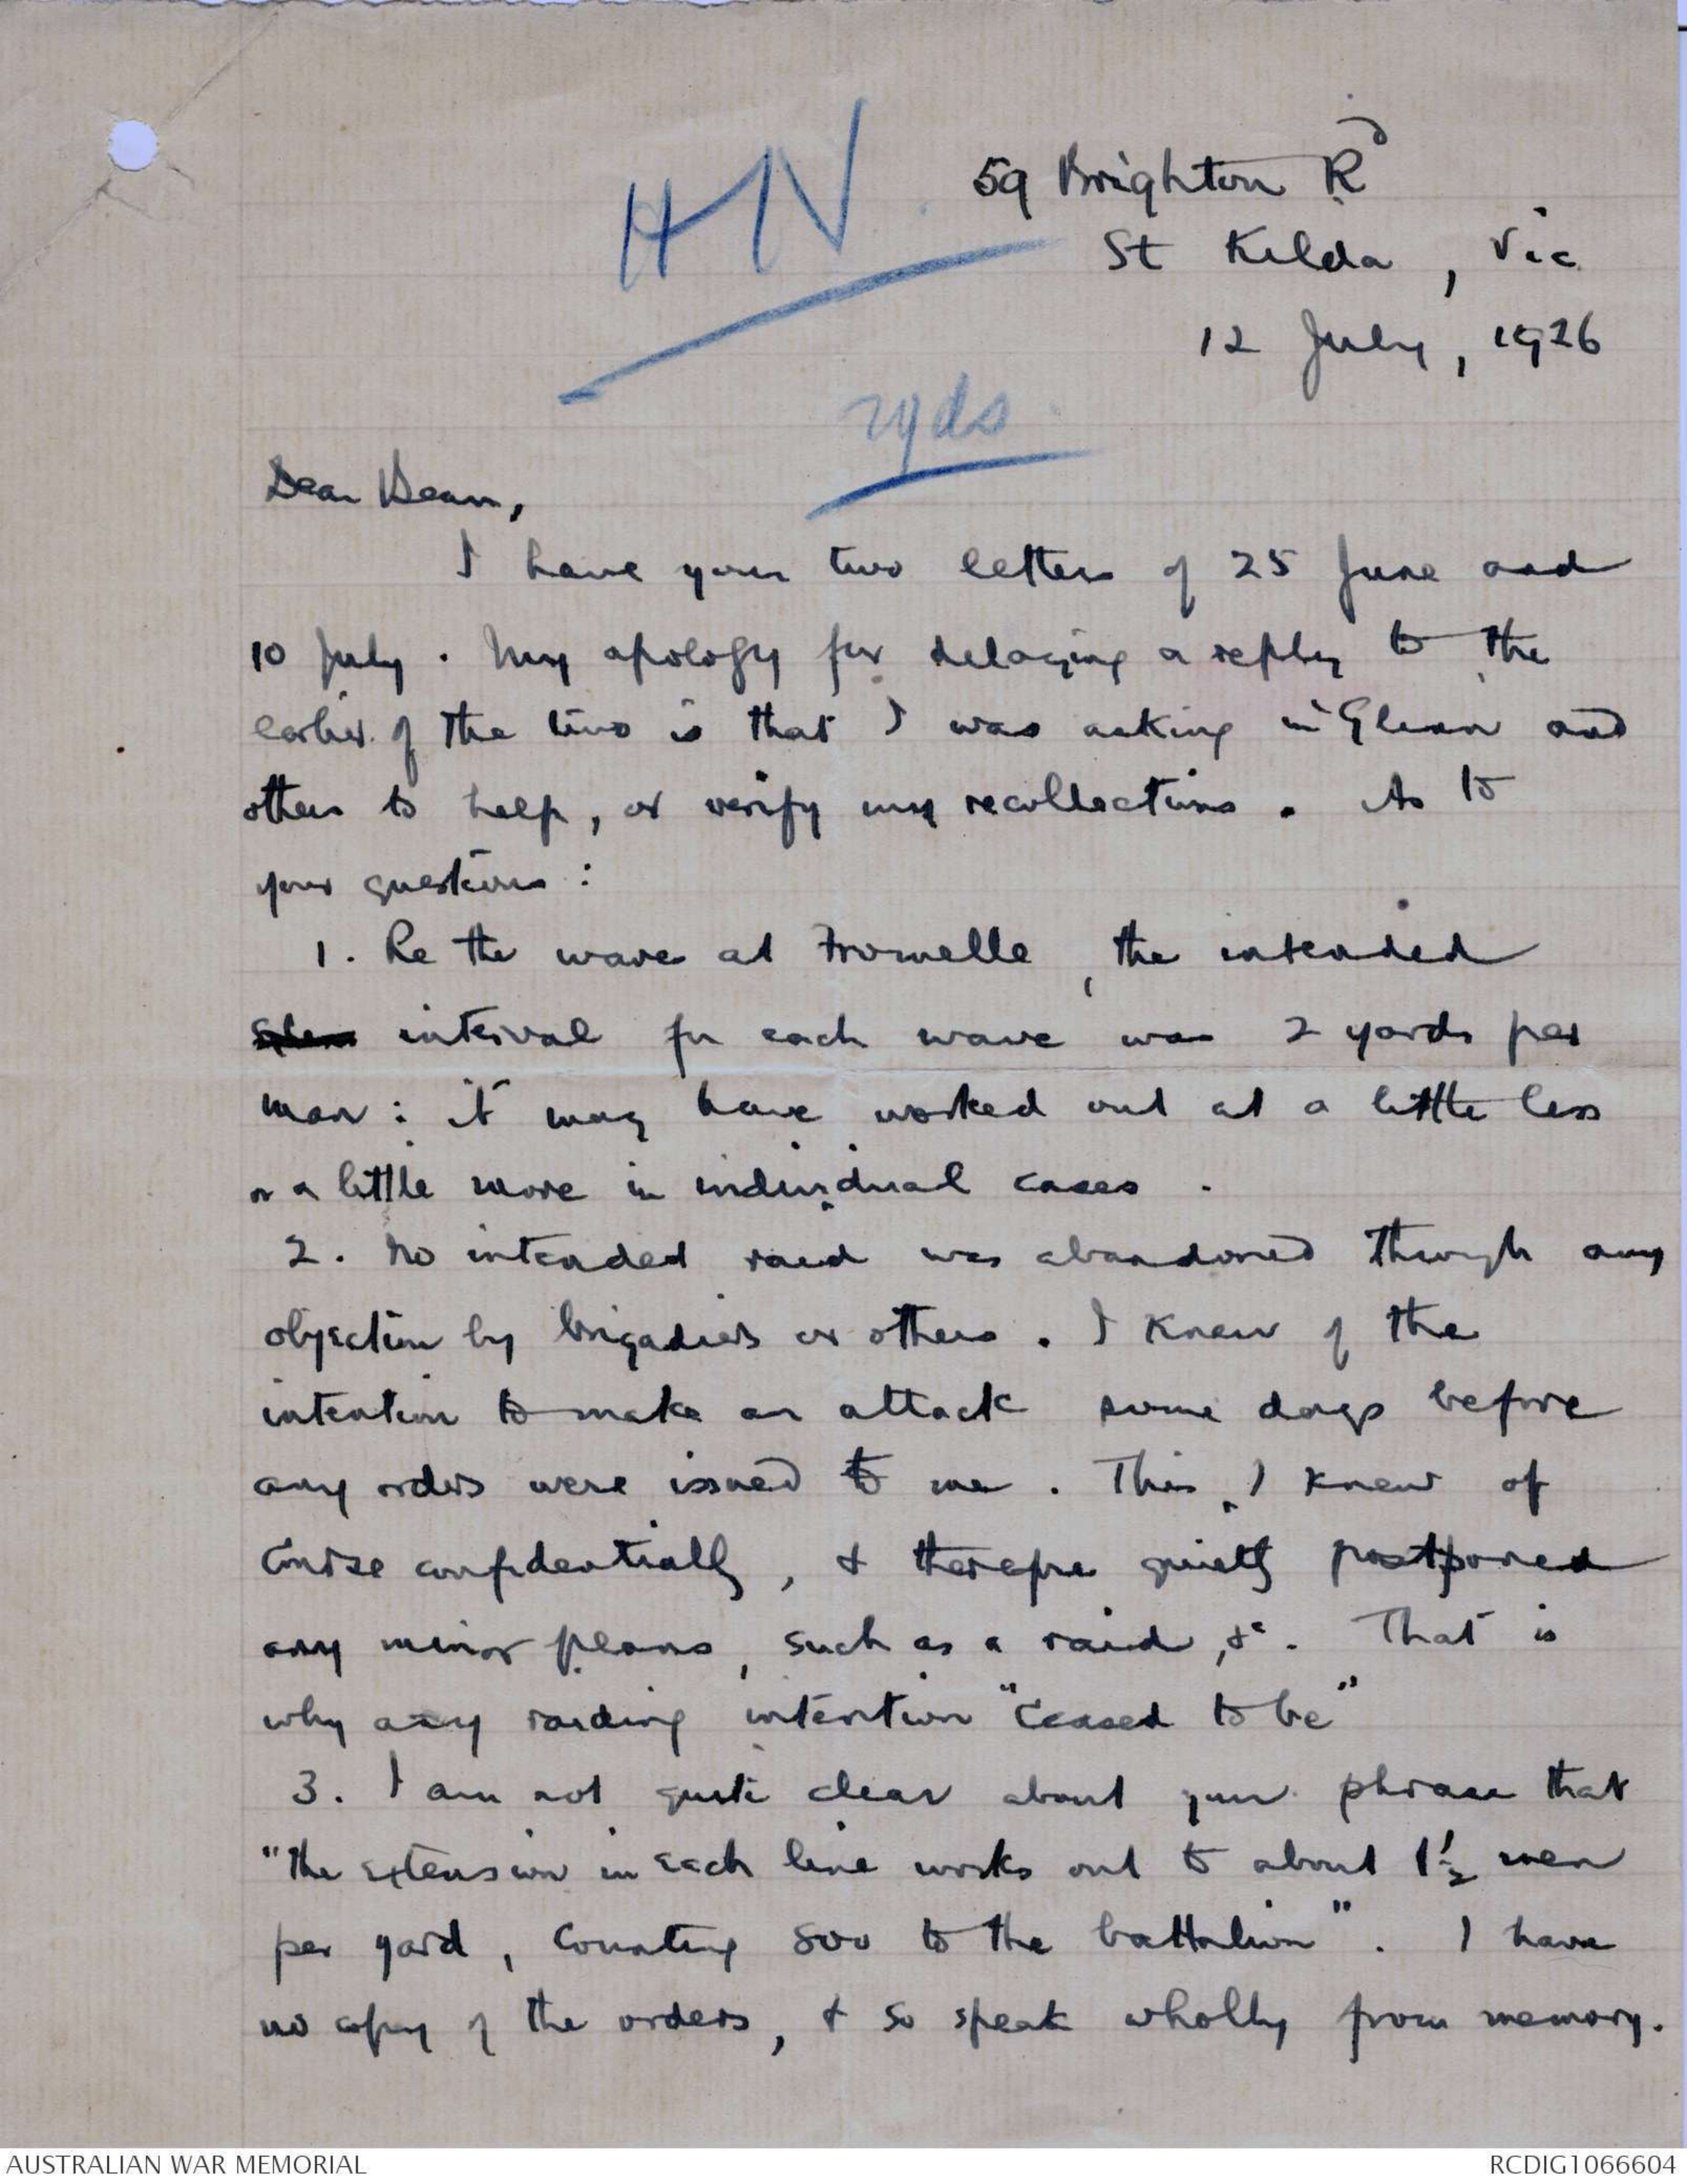 HN
59 Brighton Rd
St Kilda, Vic
12 July, 1926
2yds
Dear Bean,
I have your two letters of 25 June and
10 July. My apology for delaying a reply to the
earlier of the two is that I was asking and
others to help, or verify my recollections. As to
your questions:
1. Re the waves at Fromelle, the intended
interval for each wave was 2 yards per
man: it may have worked out at a little less
or a little more in individual cases.
2. No intended raid was abandoned through any
objection by brigadiers or others. I knew of the
intention to make an attack some days before
any orders were issued to me. This, I knew of
course confidentially, & therefore quietly postponed
any minor plans, such as a raid, &c. That is
why any raiding intention "ceased to be"
3. I am not quite clear about your phrase that
"the extension in each line works out to about 1½ men
per yard, counting 800 to the battalion". I have
no copy of the orders, & so speak wholly from memory.
AUSTRALIAN WAR MEMORIAL
RCDIG1066604